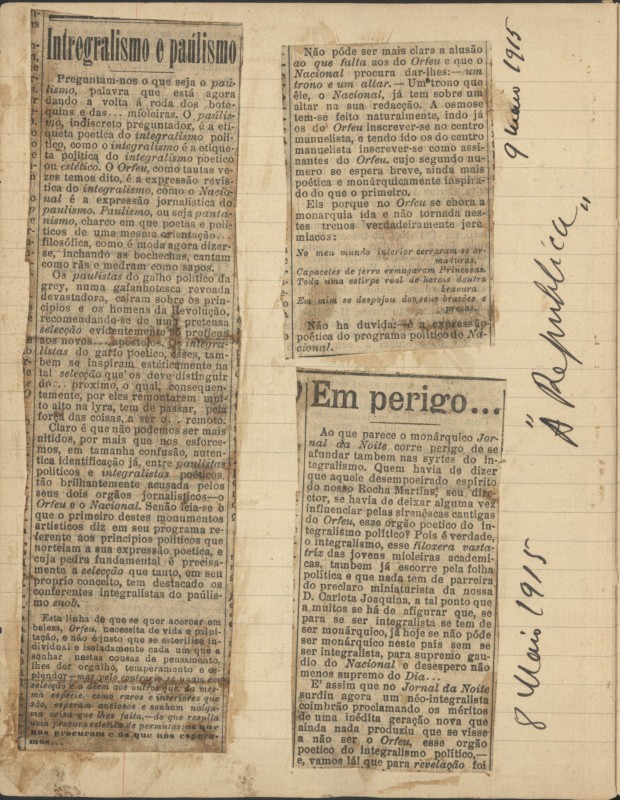 Intregralismo e paúlismo
Preguntam-nos o que seja o paú-
lismo, palavra que está agora
dando a volta á roda dos bote-
quins e das... mioleiras. O paúlis-
mo, indiscreto preguntador, é a eti-
queta poetica do integralismo poli-
tico, como o integralismo é a etique-
ta politica do integralismo poetico
ou estético. O Orfeu, como tautas ve-
zes temos dito, é a expressão revis-
tica do integralismo, como o Nacio-
nal é a expressão jornalistica do
paulismo. Paulismo, ou seja panta-
nismo, charco em que poetas e poli-
ticos de uma mesma orientação
filosófica, como é moda agora dizer-
se, inchando as bochechas, cantam
como rãs e medram como sapos.
Os paulistas do galho politico da
grey, numa gafanhotesca revoada
devastadora, caíram sobre os prin-
cipios e os homens da Revolução,
recomendando-se de uma pretensa
selecção evidentemente
aos novos... apostolos. Os integra-
listas do garfo poetico, esses, tam-
bem se inspiram estéticamente na
tal selecção que os deve distinguir
do... proximo, o qual, consequen-
temente, por eles remontarem mui-
to alto na lyra, tem de passar, pela
força das coisas, a ser o... remoto.
Claro é que não podemos ser mais
nitidos, por mais que nos esforce-
mos, em tamanha confusão, auten-
tica identificação já, entre paulistas
politicos e integralistas poéticos,
tão brilhantemente acusada pelos
seus dois orgãos jornalisticos—o
Orfeu e o Nacional. Senão leia-se o
que o primeiro destes monumentos
artisticos diz em seu programa re-
ferente aos principios politicos que
norteiam a sua expressão poetica, e
cuja pedra fundamental é precisa-
mente a selecção que tanto, em seu
proprio conceito, tem destacado os
conferentes integralistas do paúlis-
mo snob.
Esta linha de que se quer acercar em
beleza, Orfeu, necessita de vida e palpi-
tação, e não é justo que se esterilise in-
dividual e isoladamente cada um que a
sonhar nestas cousas de pensamento,
lhes der orgulho, temperamento e es-
plendor—mas pelo contrario se unam em
selecção e a dêem aos outros que, da mes-
ma especie, como raros e interiores que
são, esperam anciosos e sonham nalgu-
ma coisa que lhes falta,—do que resulta
uma procura estetica de permutas: os que
nos procuram e os que nós espera-
mos...
Não póde ser mais claro a alusão
ao que falta aos do Orfeu e que o
Nacional procura dar-lhes:—um
trono e um altar.—Um trono que
êle, o Nacional, já tem sobre um
altar na sua redacção. A osmose
tem-se feito naturalmente, indo já
os do Orfeu inscrever-se no centro
manuelista, e tendo ido os do centro
manuelista inscrever-se como assi-
nantes do Orfeu, cujo segundo nu-
mero se espera breve, ainda mais
poética e monárquicamente inspira-
do do que o primeiro.
Eis porque no Orfeu se chora a
monarquia ida e não tornada nes-
tes trenos verdadeiramente jere-
miacos:
No meu mundo interior cerraram-se ar-
maduras,
Capacetes de ferro esmagaram Princesas.
Toda uma estirpe real de herois doutra
bravura
Em mim se despojou dos seus brazões e
presas.
Não ha duvida:—é a expressão
poética do programa politico do Na-
cional.
9 maio 1915
"A Republica"
Em perigo...
Ao que parece o monárquico Jor-
nal da Noite corre perigo de se
afundar tambem nas syrtes do in-
tegralismo. Quem havia de dizer
que aquele desempoeirado espirito
do nosso Rocha Martins, seu dire-
ctor, se havia de deixar alguma vez
influenciar pelas sirenêscas cantigas
do Orfeu, esse orgão poetico do in-
tegralismo politico? Pois é verdade,
o integralismo, esse filoxera vasta-
triz das jovens mioleiras academi-
cas, tambem já escorre pela folha
politica e que nada tem de parreira
do preclaro miniaturista da nossa
D. Carlota Joaquina, a tal ponto que
a muitos se há de afigurar que, se
para se ser integralista se tem de
ser monárquico, já hoje se não póde
ser monárquico neste país sem se
ser integralista, para supremo gau-
dio do Nacional e desespero não
menos supremo do Dia...
E' assim que no Jornal da Noite
surdiu agora um néo-integralista
coimbrão proclamando os méritos
de uma inédita geração nova que
ainda nada produziu que se visse
a não ser o Orfeu, esse orgão
poetico do integralismo politico,—
e, vamos lá! que para revelação foi
8 Maio 1915